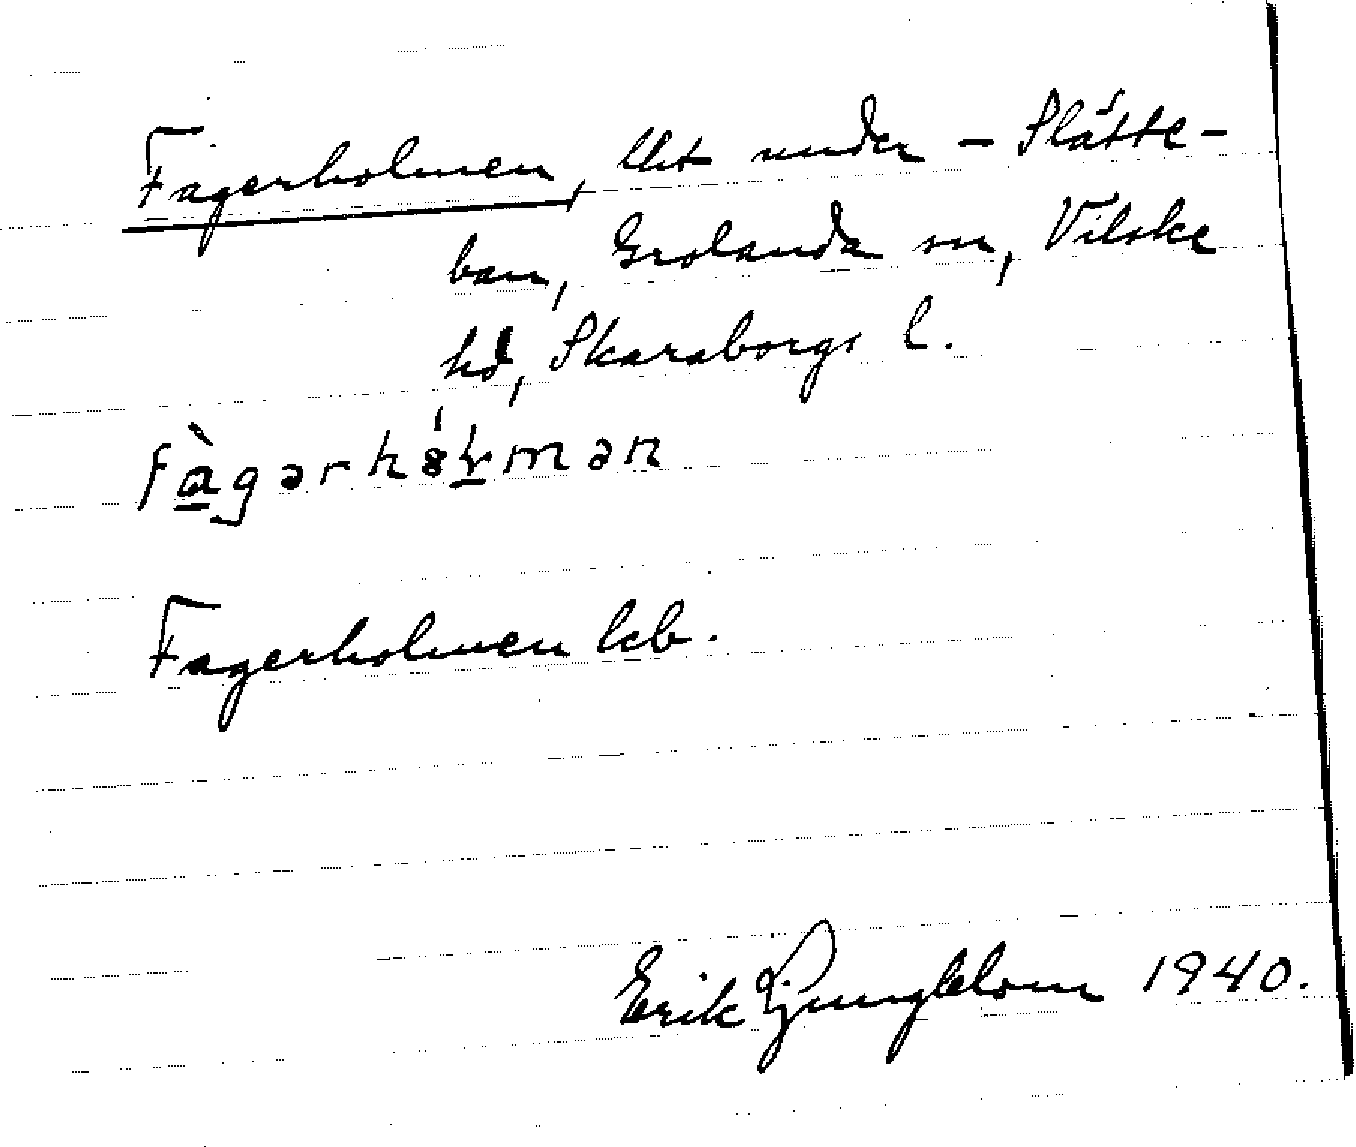 Fagerholmen, lht under – Slätte-
ban, Grolanda sn, Vilske
hd, Skaraborgs l.
Fagerholmen lcb.
Erik Ljungblom 1940.